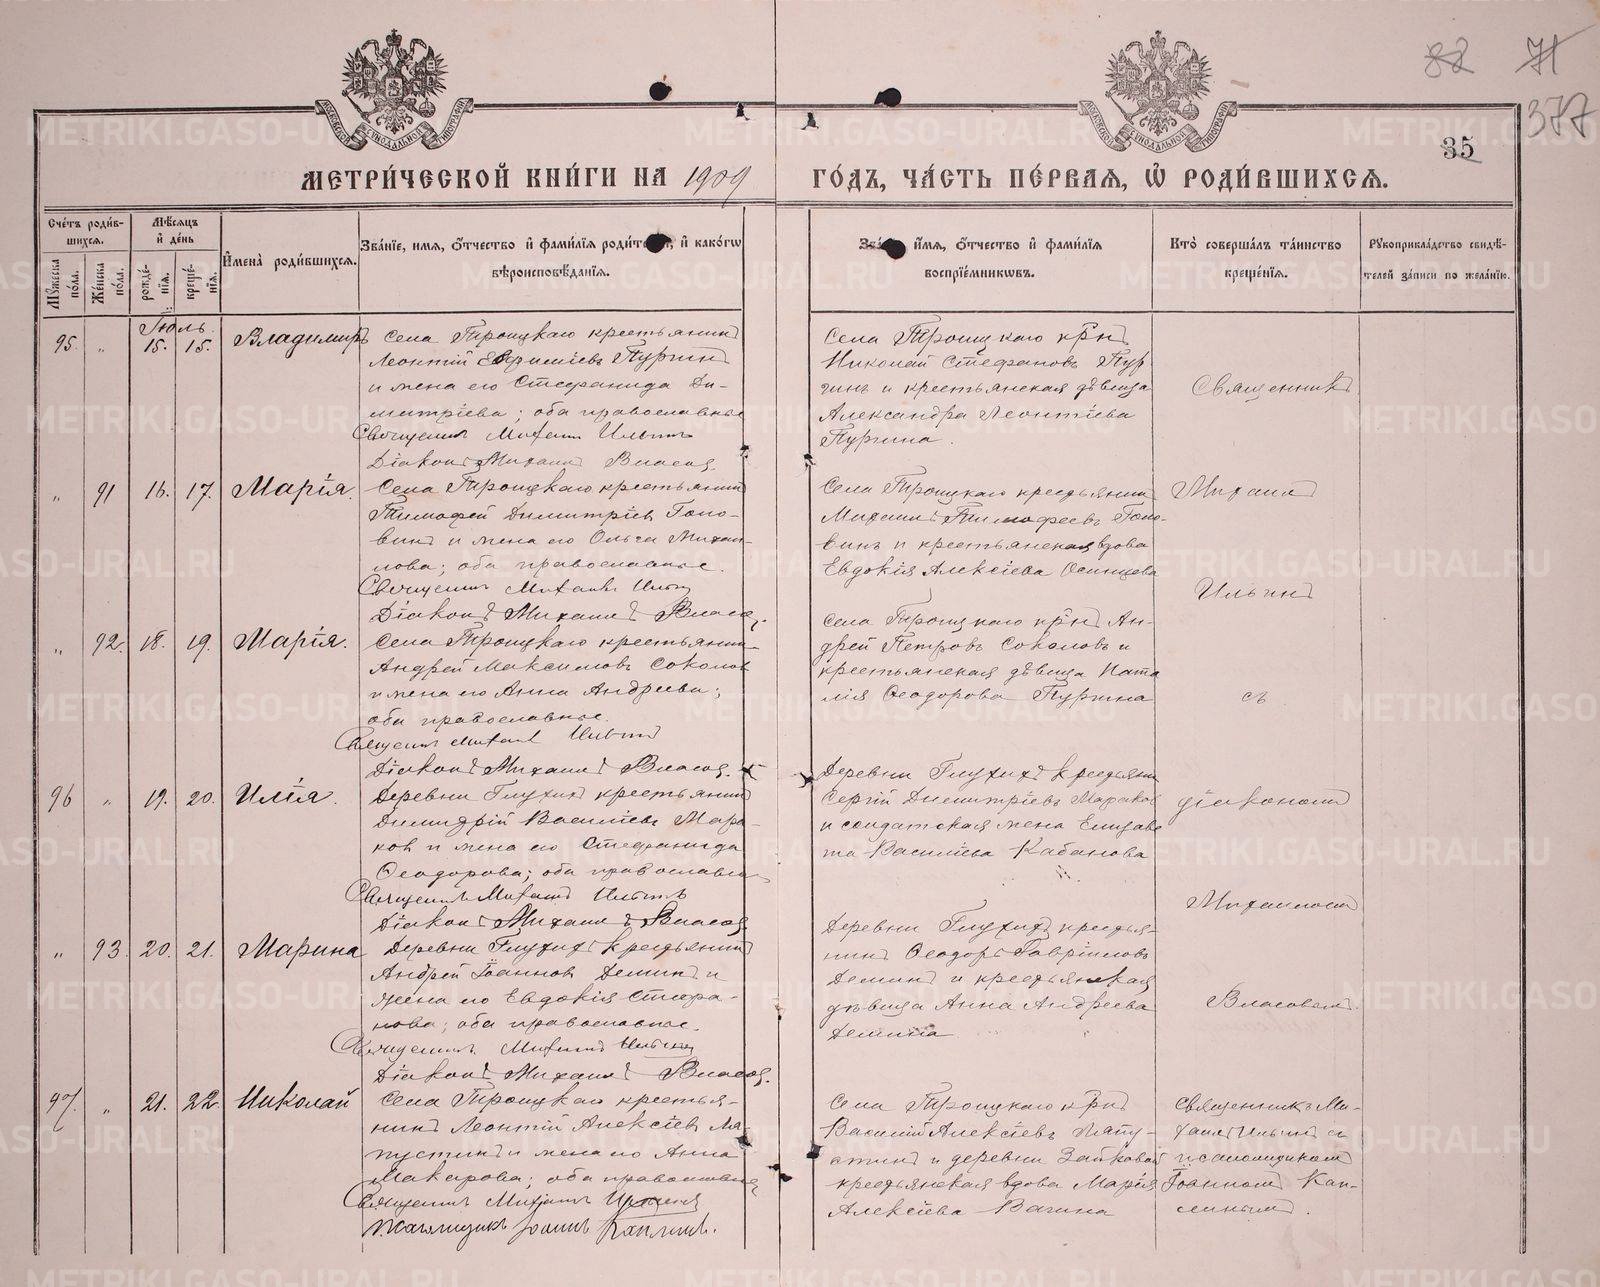 82 71
377
35
МЕТРИ́ЧЕСКОЙ КНИ́ГИ НА 1909 ГО́ДЪ, ЧА́СТЬ ПЕ́РВАЯ, Ѽ РОДИ́ВШИХСЯ.
Сче́тъ роди́вшихся.
Му́жеска по́ла.
Же́нска по́ла.
Мѣ́сяцъ и де́нь
рожде́нїя.
креще́нїя.
Имена̀ роди́вшихся.
Зва́нїе, имя, о́тчество и фами́лїя роди́телей, и како́гѡ вѣроисповѣ́данїя.
Зва́нїе, имя, о́тчество и фами́лїя воспрїе́мниковъ.
Кто̀ соверша́лъ та́инство креще́нїя.
Рукоприкла́дство свидѣ́телей за́писи по жела́нїю.
Іюль.
95. „ 15. 15. Владимиръ
Села Троицкаго крестьянинъ
Леонтій Евфиміевъ Пургинъ
и жена его Стефанида Ди-
митріева; оба православные
Священникъ Михаилъ Ильинъ
Діаконъ Михаилъ Власовъ.
Села Троицкаго кр̃нъ
Николай Стефановъ Пур
гинъ и крестьянская дѣвица
Александра Леонтіева
Пургина.
Священникъ
„ 91 16. 17. Марія.
Села Троицкаго крестьянинъ
Тимофей Димитріевъ Голо-
винъ и жена его Ольга Михаи-
лова; оба православные.
Священникъ Михаилъ Ильинъ
Діаконъ Михаилъ Власовъ.
Села Троицкаго крестьянинъ
Михаилъ Тимофеевъ Голо-
винъ и крестьянская вдова
Евдокія Алексіева Осинцева
Михаилъ
Ильинъ
„ 92. 18. 19. Марія.
Села Троицкаго крестьянинъ
Андрей Максимовъ Соколовъ
и жена его Анна Андреева;
оба православные.
Священникъ Михаилъ Ильинъ
Діаконъ Михаилъ Власовъ.
Села Троицкаго кр̃нъ Ан-
дрей Петровъ Соколовъ и
крестьянская дѣвица Ната
лія Ѳеодорова Пургина
съ
96 „ 19. 20. Илія.
Деревни Глухихъ крестьянинъ
Димитрій Василіевъ Мара-
ковъ и жена его Стефанида
Ѳеодорова; оба православные
Священникъ Михаилъ Ильинъ
Діаконъ Михаилъ Власовъ
Деревни Глухихъ крестьянинъ
Сергій Димитріевъ Мараковъ
и солдатская жена Елизаве
та Василіева Кабанова
діакономъ
Михаиломъ
„ 93. 20. 21. Марина
Деревни Глухихъ крестьянинъ
Андрей Іоанновъ Деминъ и
жена его Евдокія Стефа-
нова; оба православные.
Священникъ Михаилъ Ильинъ
Діаконъ Михаилъ Власовъ.
Деревни Глухихъ крестья-
нинъ Ѳеодоръ Гавріиловъ
Деминъ и крестьянская
дѣвица Анна Андреева
Демина
Власовымъ.
97. „ 21. 22. Николай
Села Троицкаго крестья-
нинъ Леонтій Алексіевъ Ла-
пустинъ и жена его Анна
Макарова; оба православные
Священникъ Михаилъ Ильинъ
Псаломщикъ Іоаннъ Каплинъ.
Села Троицкаго кр̃нъ
Василій Алексіевъ Лапу-
стинъ и деревни Зайковой
крестьянская вдова Марія
Алексіева Вагина
Священникъ Ми-
хаилъ Ильинъ съ
псаломщикомъ
Іоанномъ Кап-
линымъ.
METRIKI.GASO-URAL.RU